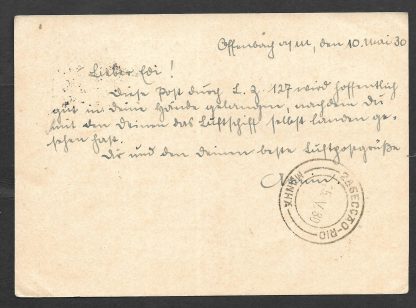 Offenbach a/M, den 10. Mai 30
Lieber Edi!
Diese Post durch L. Z. 127 wird hoffentlich
gut in deine Hände gelangen, nachdem du
mit den Deinen das Luftschiff selbst landen ge-
sehen hast.
Dir und den deinen beste Luftpostgrüße
2A SECCÃO-RIO
V.30